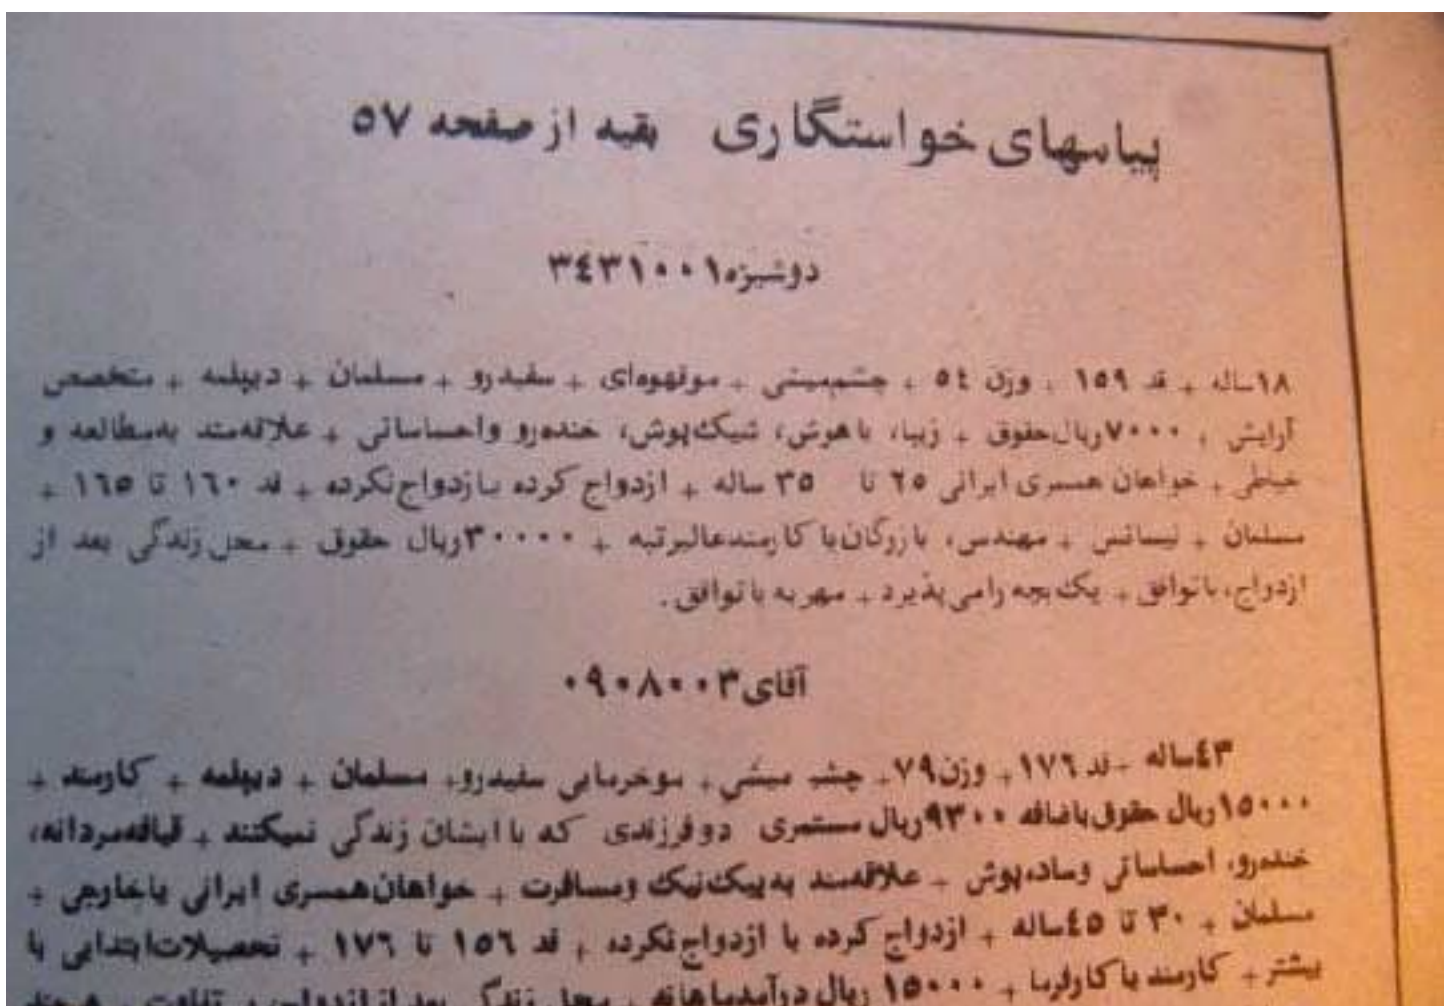 پیامهای خواستگاری بقیه از صفحه ۵۷
دوشیزه ۳۴۳۱۰۰۱
۱۸ساله + قد ۱۵۹ + وزن ۵۴ + چشم‌میشی + موقهوه‌ای + سفیدرو + مسلمان + دیپلمه + متخصص
آرایش + ۷۰۰۰ریال‌حقوق + زیبا، باهوش، شیک‌پوش، خنده‌رو واحساساتی + علاقه‌مند به‌مطالعه و
خیاطی + خواهان همسری ایرانی ۲۵ تا ۳۵ ساله + ازدواج کرده یاازدواج‌نکرده + قد ۱۶۰ تا ۱۶۵ +
مسلمان + لیسانس + مهندس، بازرگان‌یا کارمندعالیرتبه + ۳۰۰۰۰ریال حقوق + محل‌زندگی بعد از
ازدواج، باتوافق + یک‌بچه رامی‌پذیرد + مهریه باتوافق.
آقای ۰۹۰۸۰۰۳
۴۳ساله +قد ۱۷۶+ وزن۷۹+ چشم میشی + موخرمایی سفیدرو+ مسلمان + دیپلمه + کارمند +
۱۵۰۰۰ریال حقوق‌باضافه ۹۳۰۰ریال‌مستمری دوفرزندی که باایشان زندگی نمیکنند + قیافه‌مردانه،
خنده‌رو، احساساتی وساده‌پوش + علاقمند به‌پیک‌نیک ومسافرت + خواهان‌همسری ایرانی یاخارجی +
مسلمان + ۳۰ تا ۴۵ساله + ازدواج کرده یا ازدواج‌نکرده + قد ۱۵۶ تا ۱۷۶ + تحصیلات‌ابتدایی یا
بیشتر + کارمند یاکارفرما + ۱۵۰۰۰ ریال درآمدماهانه + محل زندگی بعد ازازدواج،